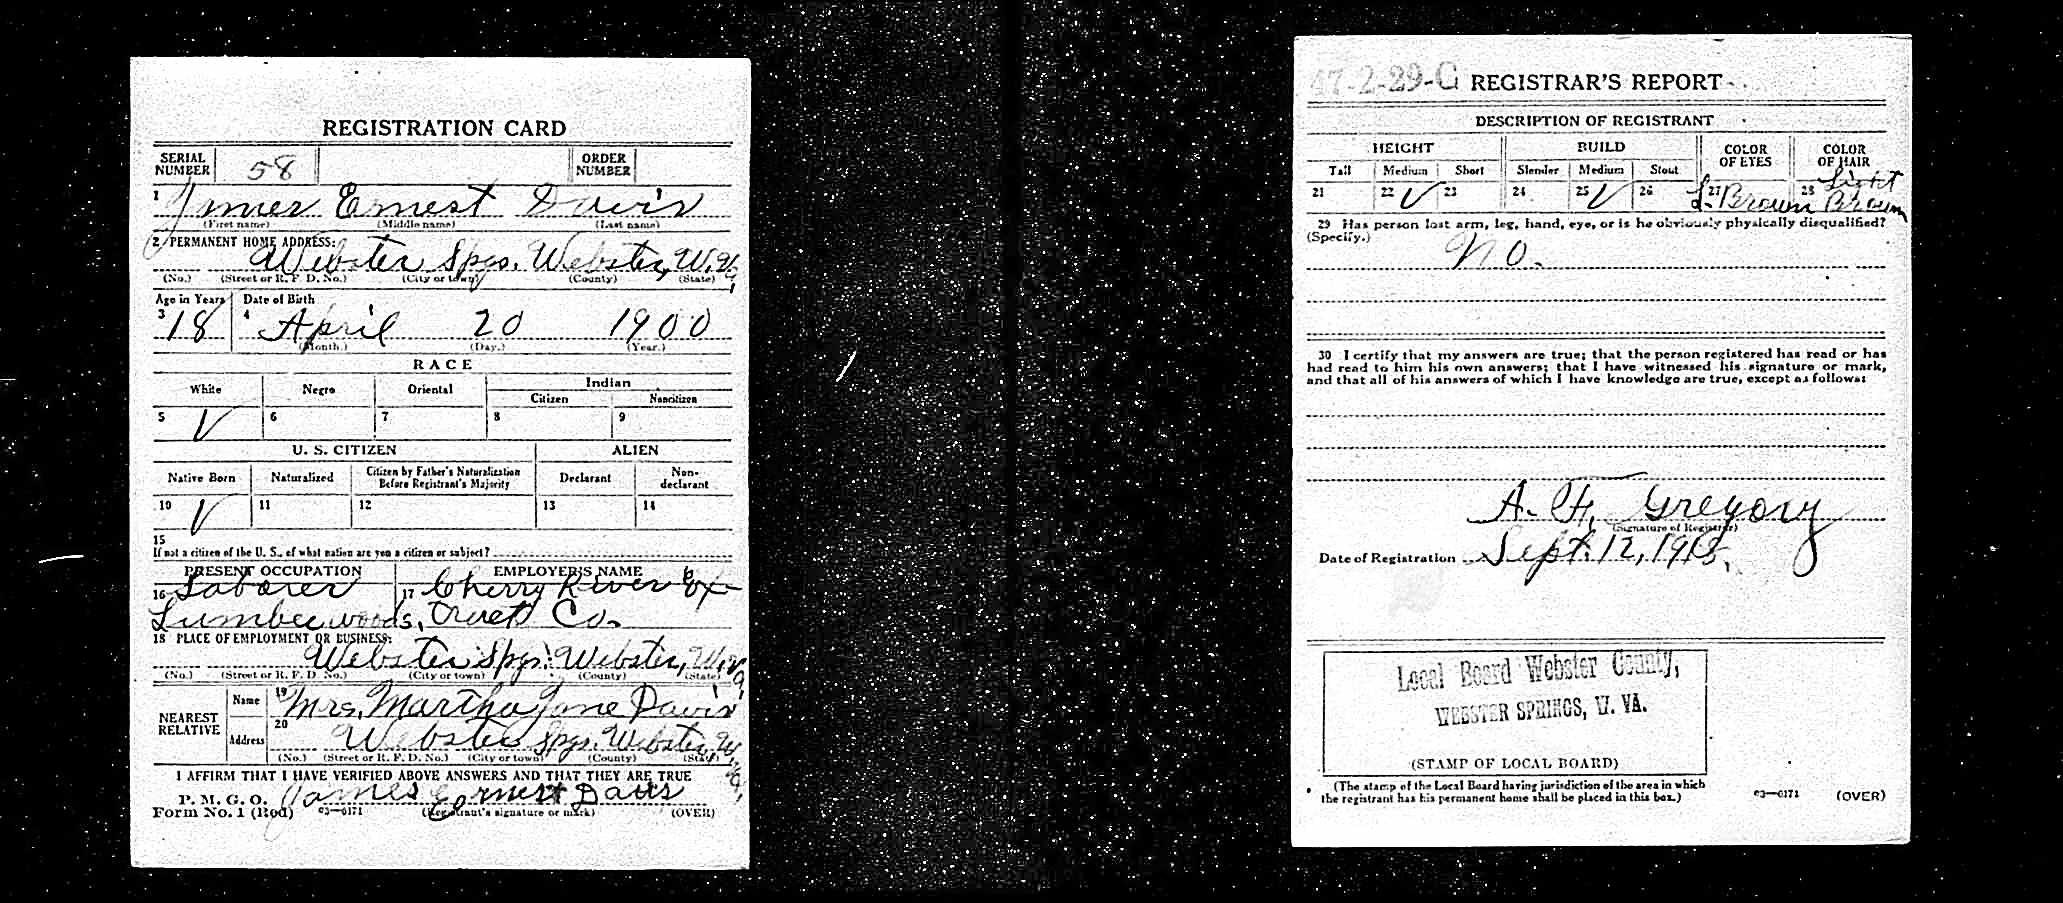 REGISTRATION CARD
SERIAL NUMBER 58 ORDER NUMBER
1 James Ernest Davis
(First name) (Middle name) (Last name)
2 PERMANENT HOME ADDRESS:
Webster Spgs. Webster, W. Va.
(No.) (Street or R. F. D. No.) (City or town) (County) (State)
Age in Years Date of Birth
3 18 4 April 20 1900
(Month.) (Day.) (Year.)
RACE
White Negro Oriental Indian
Citizen Noncitizen
5 √ 6 7 8 9
U. S. CITIZEN ALIEN
Native Born Naturalized Citizen by Father's Naturalization Before Registrant's Majority Declarant Non-declarant
10 √ 11 12 13 14
15
If not a citizen of the U. S., of what nation are you a citizen or subject?
PRESENT OCCUPATION EMPLOYER'S NAME
16 Laborer 17 Cherry River
Lumber woods, Co.
18 PLACE OF EMPLOYMENT OR BUSINESS:
Webster Spgs. Webster, W. Va.
(No.) (Street or R. F. D. No.) (City or town) (County) (State)
NEAREST RELATIVE
Name 19 Mrs. Martha Jane Davis
Address 20 Webster Spgs. Webster, W. Va.
(No.) (Street or R. F. D. No.) (City or town) (County) (State)
I AFFIRM THAT I HAVE VERIFIED ABOVE ANSWERS AND THAT THEY ARE TRUE
P. M. G. O.
Form No. 1 (Red) 03—6171 James Ernest Davis
(Registrant's signature or mark) (OVER)
47-2-29-C REGISTRAR'S REPORT
DESCRIPTION OF REGISTRANT
HEIGHT BUILD COLOR OF EYES COLOR OF HAIR
Tall Medium Short Slender Medium Stout
21 22 √ 23 24 25 √ 26 27 L. Brown 28 Light Brown
29 Has person lost arm, leg, hand, eye, or is he obviously physically disqualified?
(Specify.) No.
30 I certify that my answers are true; that the person registered has read or has
had read to him his own answers; that I have witnessed his signature or mark,
and that all of his answers of which I have knowledge are true, except as follows:
A. F. Gregory
(Signature of Registrar)
Date of Registration Sept. 12, 1918.
Local Board Webster County,
WEBSTER SPRINGS, W. VA.
(STAMP OF LOCAL BOARD)
(The stamp of the Local Board having jurisdiction of the area in which
the registrant has his permanent home shall be placed in this box.)
03—6171 (OVER)